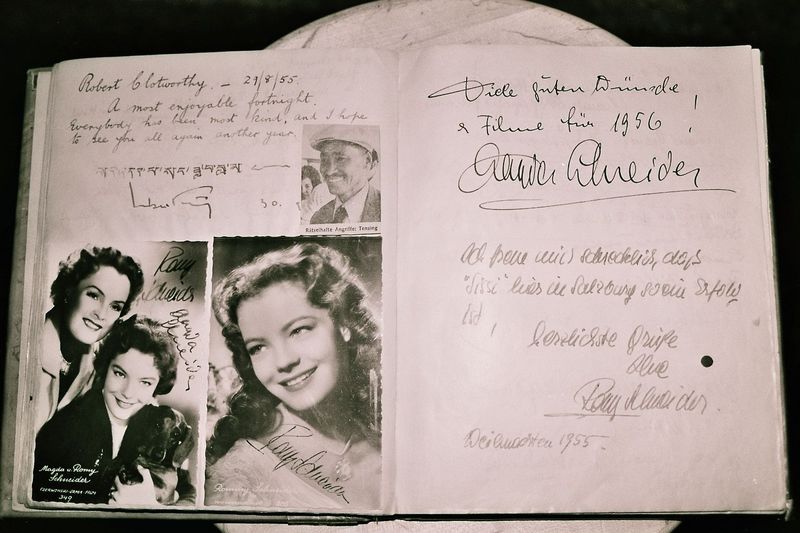 Robert Clotworthy. — 29/8/55.
A most enjoyable fortnight.
Everybody has been most kind, and I hope
to see you all again another year.
Rätselhafte Angriffe: Tensing
Romy
Schneider
Magda
Schneider
Magda u. Romy
Schneider
349
Romy Schneider
Romy Schneider
Viele guten Wünsche,
& Filme für 1956!
Magda Schneider
Ich freue mich schrecklich, daß
"Sissi" hier in Salzburg so ein Erfolg
ist,
herzlichste Grüße
Ihre
Romy Schneider.
Weihnachten 1955.